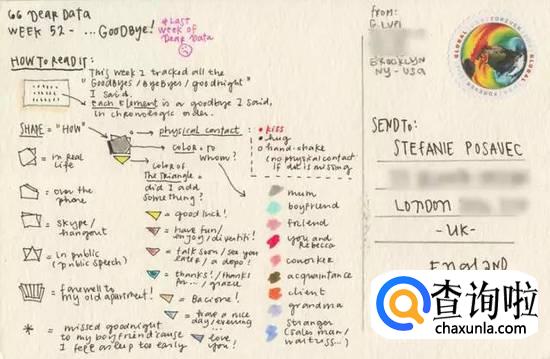 GG Dear Data
WEEK 52 - ... GOODBYE!
#Last
week of
Dear Data
HOW TO READ IT:
This week I tracked all the
"GOODBYES / BYEBYES / goodnight"
I said.
Each Element is a goodbye I said,
in chronologic order.
SHAPE = "HOW"
= in real
life
= over the
phone
= skype /
hangout
= in public
(public speech)
= farewell to
my old apartment!
= missed goodnight
to my boyfriend 'cause
I fell asleep too early
physical contact:
kiss
hug
hand-shake
(no physical contact
if dot is missing)
COLOR = to
whom?
COLOR OF
The TRIANGLE =
did I add
something?
= good luck!
= have fun /
enjoy / divertiti!
= talk soon / see you
later / a dopo!
= thanks! / thanks
for ... / grazie
= Bacione!
= have a nice
day / evening ...
= love you!
mum
boyfriend
friend
you and
Rebecca
coworker
acquaintance
client
grandma
stranger
(sales man /
waitress...)
from:
G. LUPI
BROOKLYN
NY - USA
GLOBAL
FOREVER
SEND TO:
STEFANIE POSAVEC
LONDON
- UK -
ENGLAND
查询啦
chaxunla.com